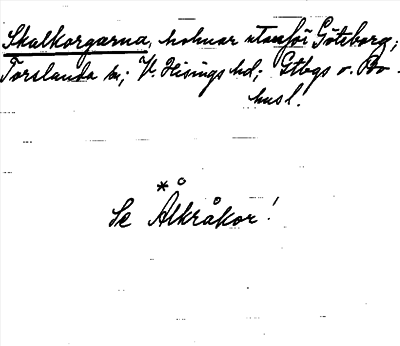 Skalkorgarna, holmar utanför Göteborg;
Torslanda sn; V. Hisings hd; Gtbgs o. Bo-
husl.
Se *Ålkråkor!